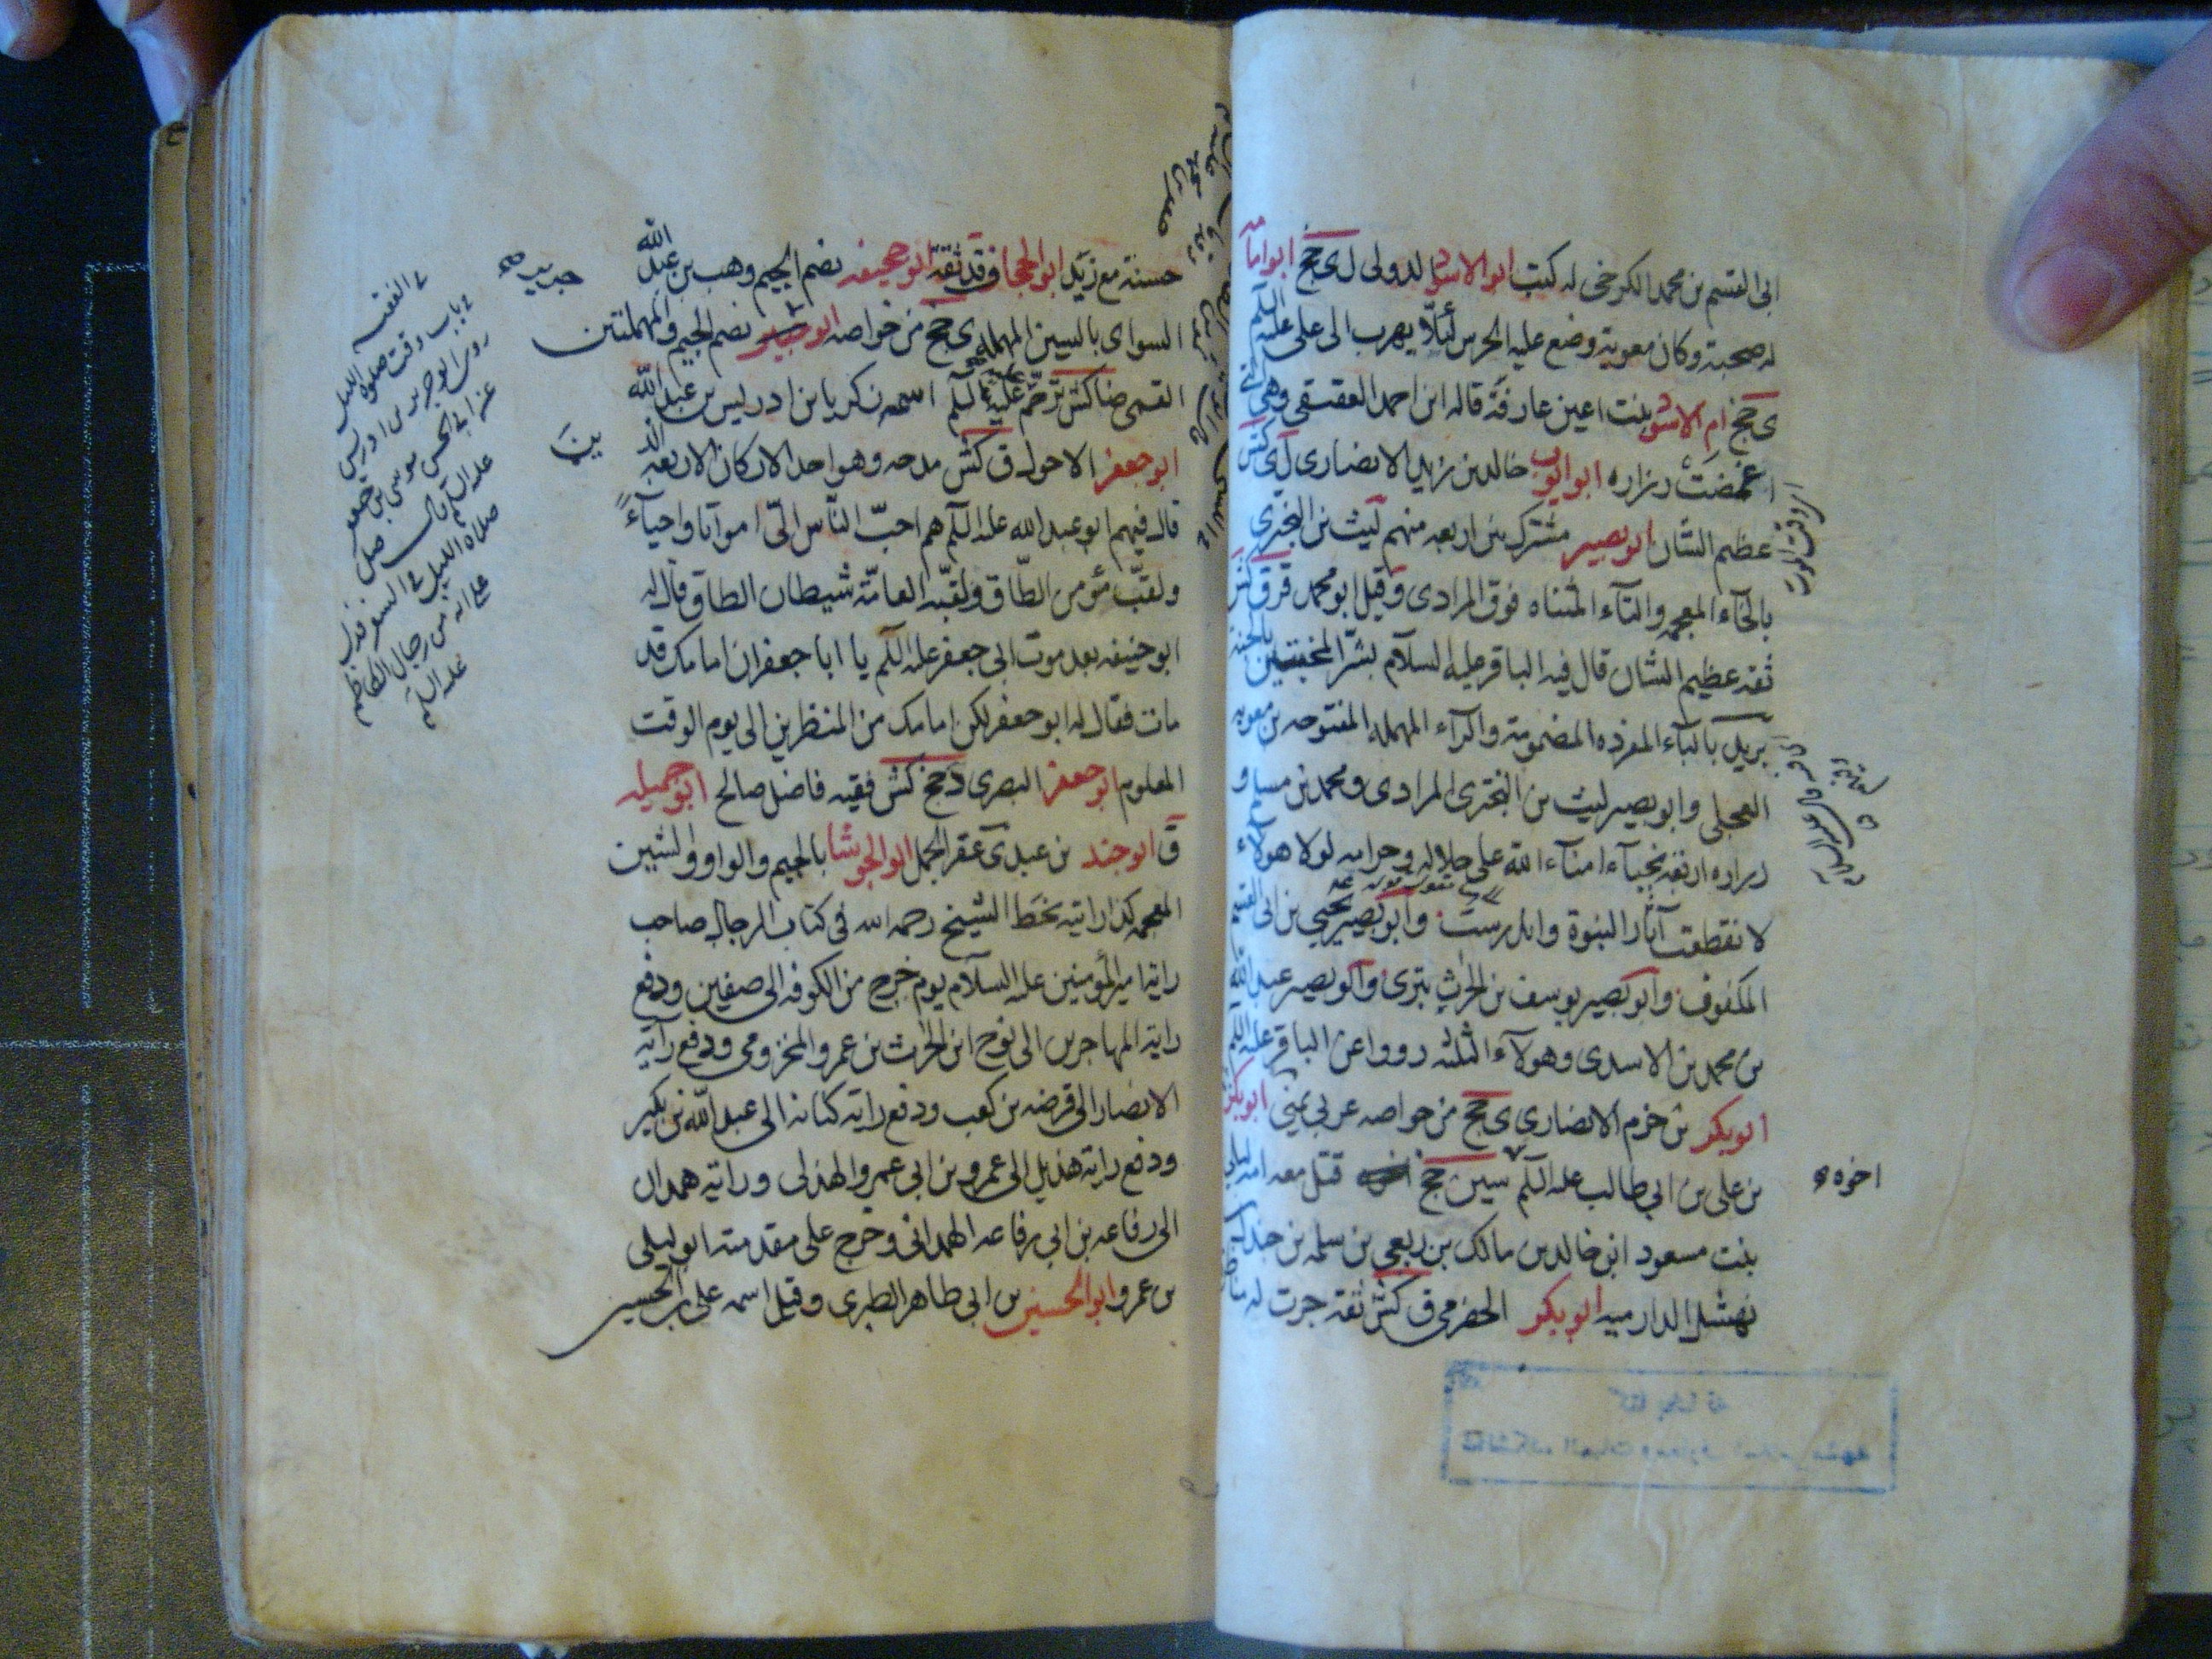 ابى القسم بن محمد الكرخى له كتب ابو الاسود الدولى ل ى جخ ابو امامه
له صحبة وكان معوية وضع عليه الحرس لئلا يهرب الى على عليه السلم
ى جخ ام الاسود بنت اعين عارفة قاله ابن احمد العقيقى وهى التى
اغمضت زراره ابو ايوب خالد بن زيد الانصارى ل ى كش
عظيم الشان ابو بصير مشترك بين اربعه منهم ليث بن البخترى
بالخآء المعجمه والتآء المثناه فوق المرادى وقيل ابو محمد قر ق كش
ثقه عظيم الشان قال فيه الباقر عليه السلام بشر المخبتين بالجنة
بريد بالبآء المفرده المضمومة والرآء المهمله المفتوحه بن معويه
العجلى وابو بصير ليث بن البخترى المرادى ومحمد بن مسلم و
زراره اربعة نجبآء امنآء الله على حلاله وحرامه لولا هولآء
لانقطعت آثار النبوة واندرست وابو بصير يحيى بن ابى القسم
المكفوف وابو بصير يوسف بن الحرث بترى وابو بصير عبد الله
بن محمد بن الاسدى وهولآء الثلثه رووا عن الباقر عليه السلم
ابو بكر بن حزم الانصارى ى جخ من خواصه عربى يمنى ابو بكر
بن على بن ابى طالب عليه السلم سين جخ قتل معه امه ليلى
اخوه
بنت مسعود ابن خالد بن مالك بن ربعى بن سلمه بن جندل
نهشل الدارميه ابو بكر الحضرمى ق كش ثقة جرت له
حسنة مع زيد ابو الحجاف قد ثقة ابو جحيفه بضم الجيم وهب بن عبد الله
السواى بالسين المهمله ى جخ من خواصه ابو جرير بضم الجيم والمهملتين
القمى ضا كش ترحم عليه السلم اسمه زكريا بن ادريس بن عبد الله
ابو جعفر الاحول ق كش مدحه وهو احد الاركان الاربعه الذين
قال فيهم ابو عبد الله عليه السلم هم احب الناس الى امواتا واحيآء
ولقب مؤمن الطاق ولقبه العامة شيطان الطاق قال له
ابو حنيفه بعد موت ابى جعفر عليه السلم يا ابا جعفر ان امامك قد
مات فقال له ابو جعفر لكن امامك من المنظرين الى يوم الوقت
المعلوم ابو جعفر البصرى د جخ كش فقيه فاضل صالح ابو جميله
ق ابو جند بن عبد ى عقر الجمل ابو الجوشا بالجيم والواو والشين
المعجمه كذا رايته بخط الشيخ رحمه الله فى كتاب الرجال صاحب
راية امير المؤمنين عليه السلام يوم خرج من الكوفه الى صفين ودفع
راية المهاجرين الى نوح ابن الحرث بن عمرو المخزومى ودفع راية
الانصار الى قرضه بن كعب ودفع راية كنانه الى عبد الله بن بكير
ودفع راية هذيل الى عمرو بن ابى عمرو الهذلى وراية همدان
الى رفاعه بن ابى رفاعه الهمدانى وخرج على مقدمته ابو ليلى
بن عمرو ابو الحسين بن ابى طاهر الطبرى وقيل اسمه على بن الحسين
فى الفقيه
فى باب وقت صلوة الليل
روى ابو جرير بن ادريس
عن ابى الحسن موسى بن جعفر
عليه السلم قال صل
صلاة الليل فى السفر فدل
على انه من رجال الكاظم
عليه السلم